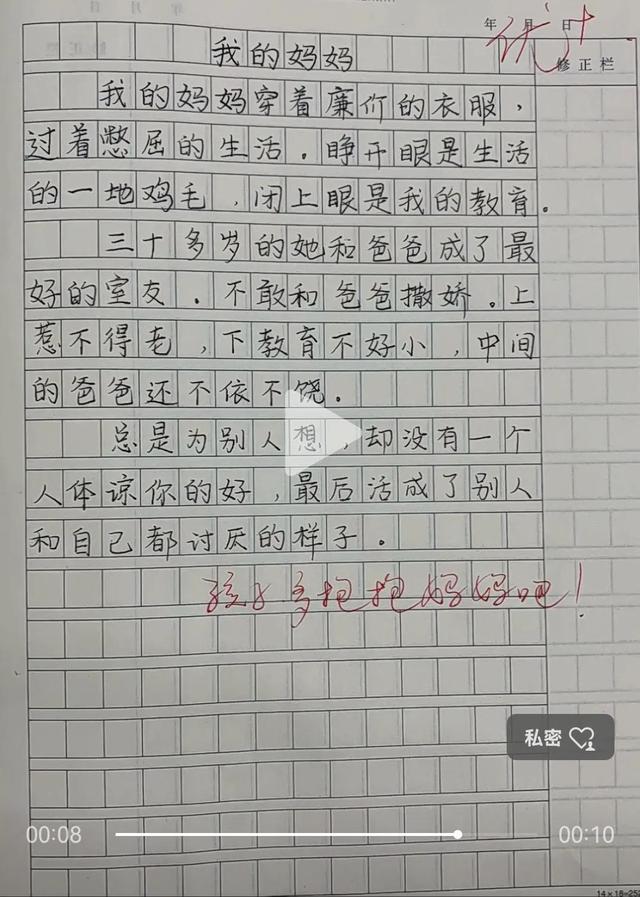 年 月 日
优+
修正栏
我的妈妈
我的妈妈穿着廉价的衣服，
过着憋屈的生活．睁开眼是生活
的一地鸡毛，闭上眼是我的教育．
三十多岁的她和爸爸成了最
好的室友．不敢和爸爸撒娇。上
惹不得老，下教育不好小，中间
的爸爸还不依不饶．
总是为别人想，却没有一个
人体谅你的好，最后活成了别人
和自己都讨厌的样子．
孩子多抱抱妈妈吧！
私密
00:08
00:10
14×18=252